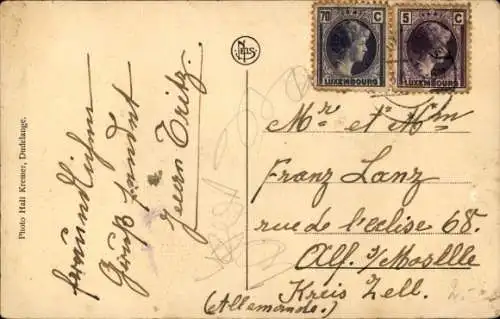 Photo Hall Kremer, Dudelange.
fraundlichen
Gruß sendet
Fritz.
NELS
70 C
LUXEMBOURG
5 C
LUXEMBOURG
Mr et Mm
Franz Lanz
rue de l'eclise 68.
Alf. s/Moslle
Kreis Zell.
(Allemande.)